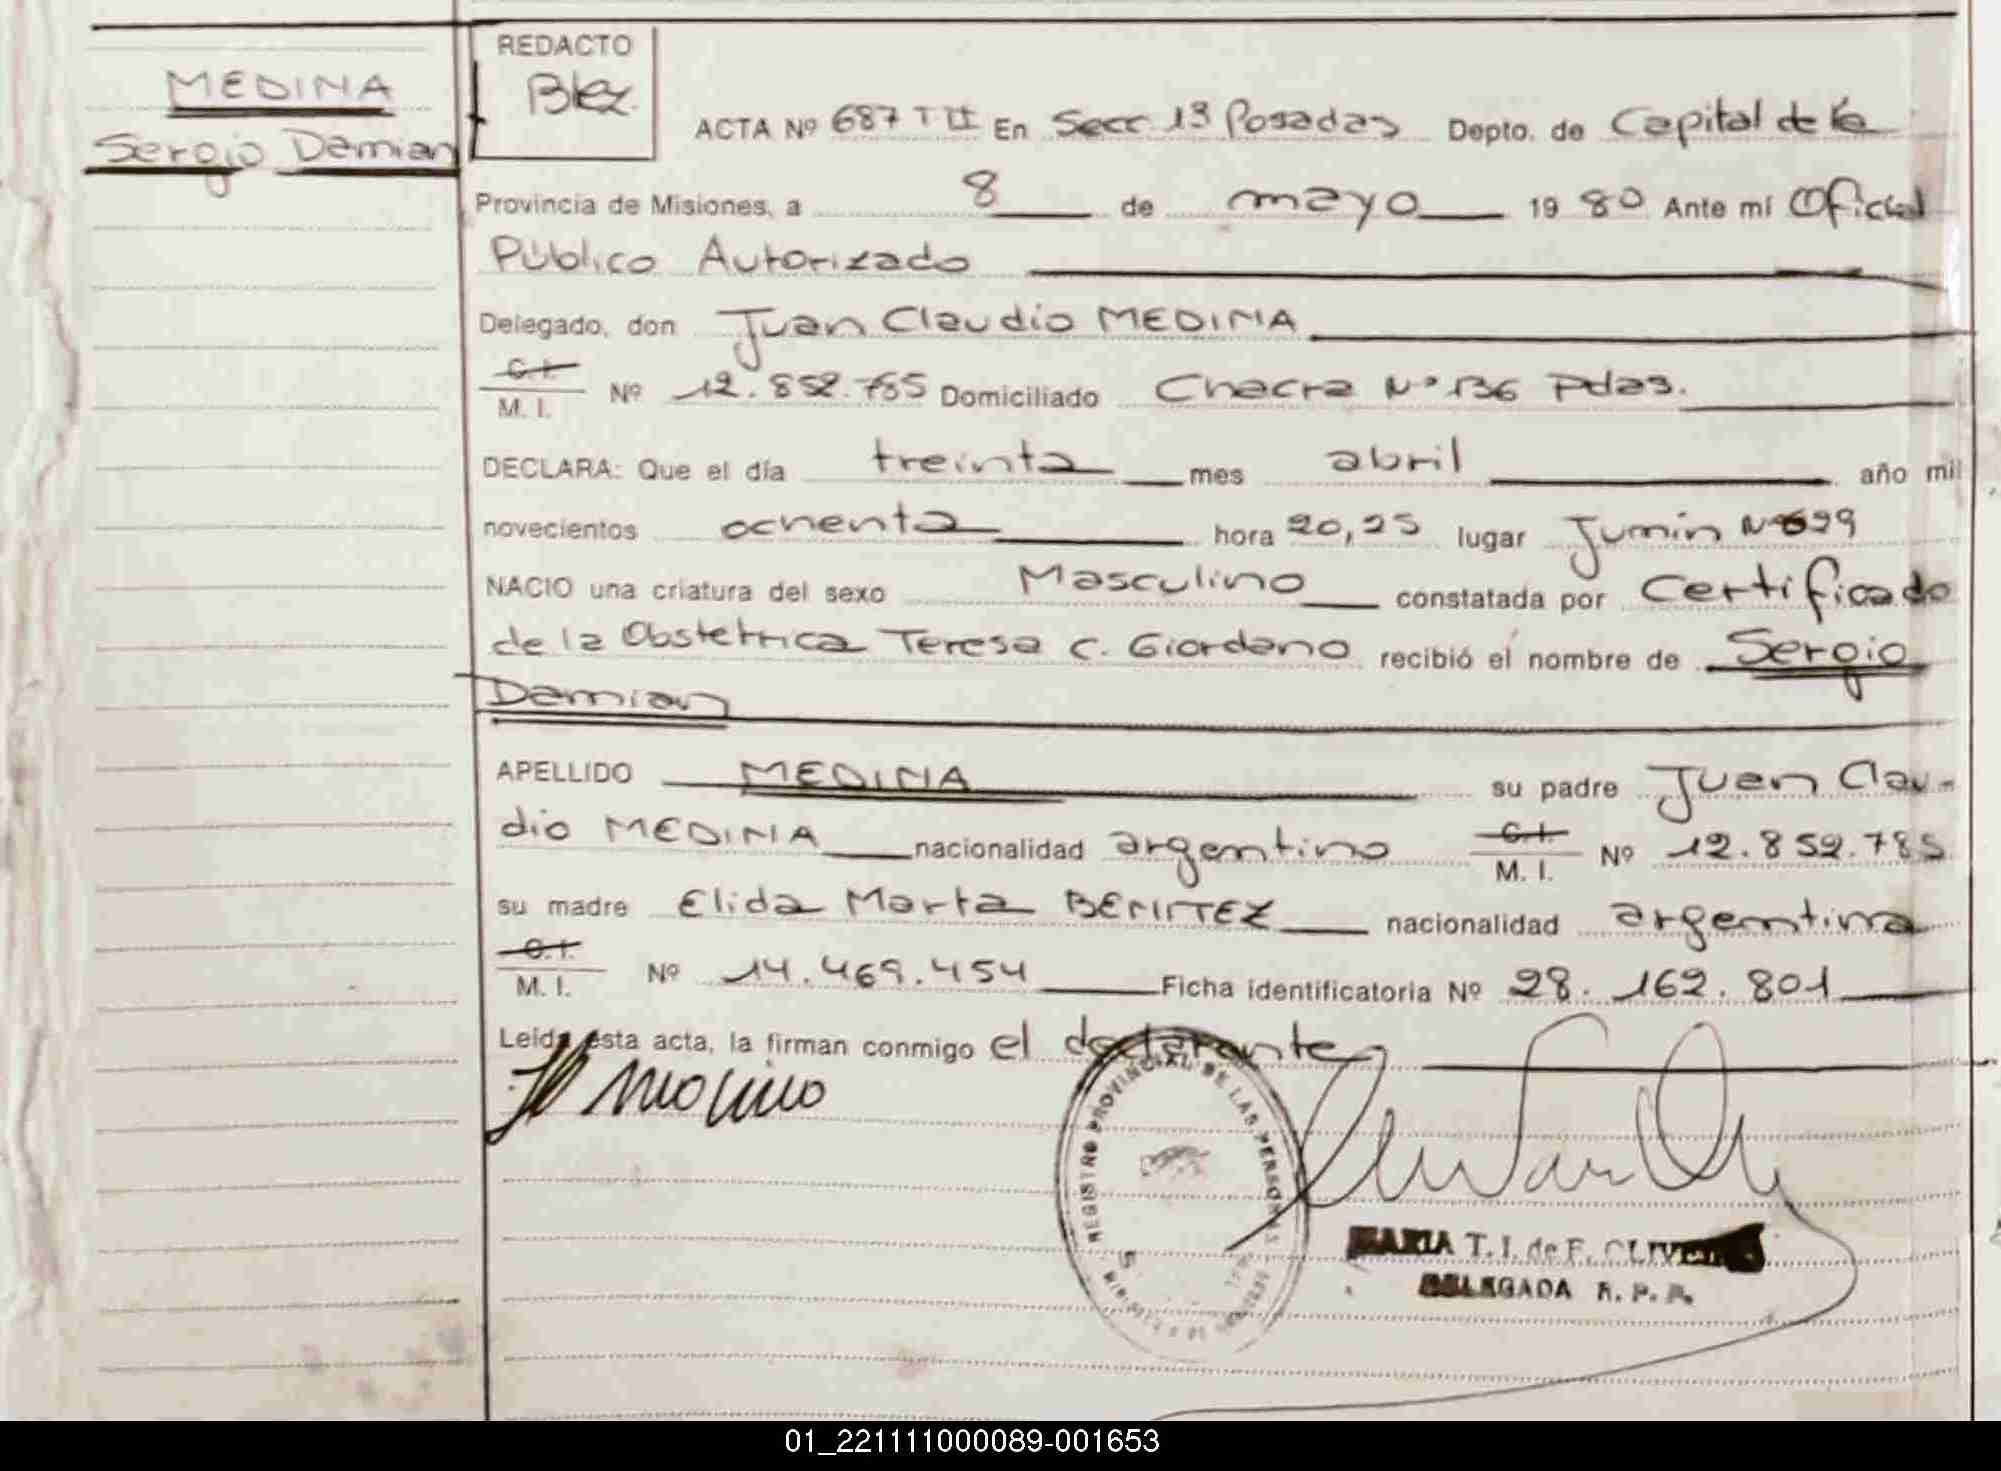 MEDINA
Sergio Damian
REDACTO
Blez.
ACTA Nº 687 T II En Secc 13 Posadas Depto. de Capital de la
Provincia de Misiones, a 8 de mayo 19 80 Ante mí Oficial
Público Autorizado
Delegado, don Juan Claudio MEDINA
C.I.
M. I. Nº 12.852.785 Domiciliado Chacra Nº 136 Pdas.
DECLARA: Que el día treinta mes abril año mil
novecientos ochenta hora 20,25 lugar Junin Nº 699
NACIO una criatura del sexo Masculino constatada por Certificado
de la Obstetrica Teresa C. Giordano recibió el nombre de Sergio
Damian
APELLIDO MEDINA su padre Juan Clau-
dio MEDINA nacionalidad argentino C.I. M. I. Nº 12.852.785
su madre Elida Marta BENITEZ nacionalidad argentina
C.I.
M. I. Nº 14.469.454 Ficha identificatoria Nº 28.162.801
Leída esta acta, la firman conmigo el declarante
REGISTRO PROVINCIAL DE LAS PERSONAS
MARIA T. I. de F. OLIVEIRA
DELEGADA R. P. P.
01_221111000089-001653